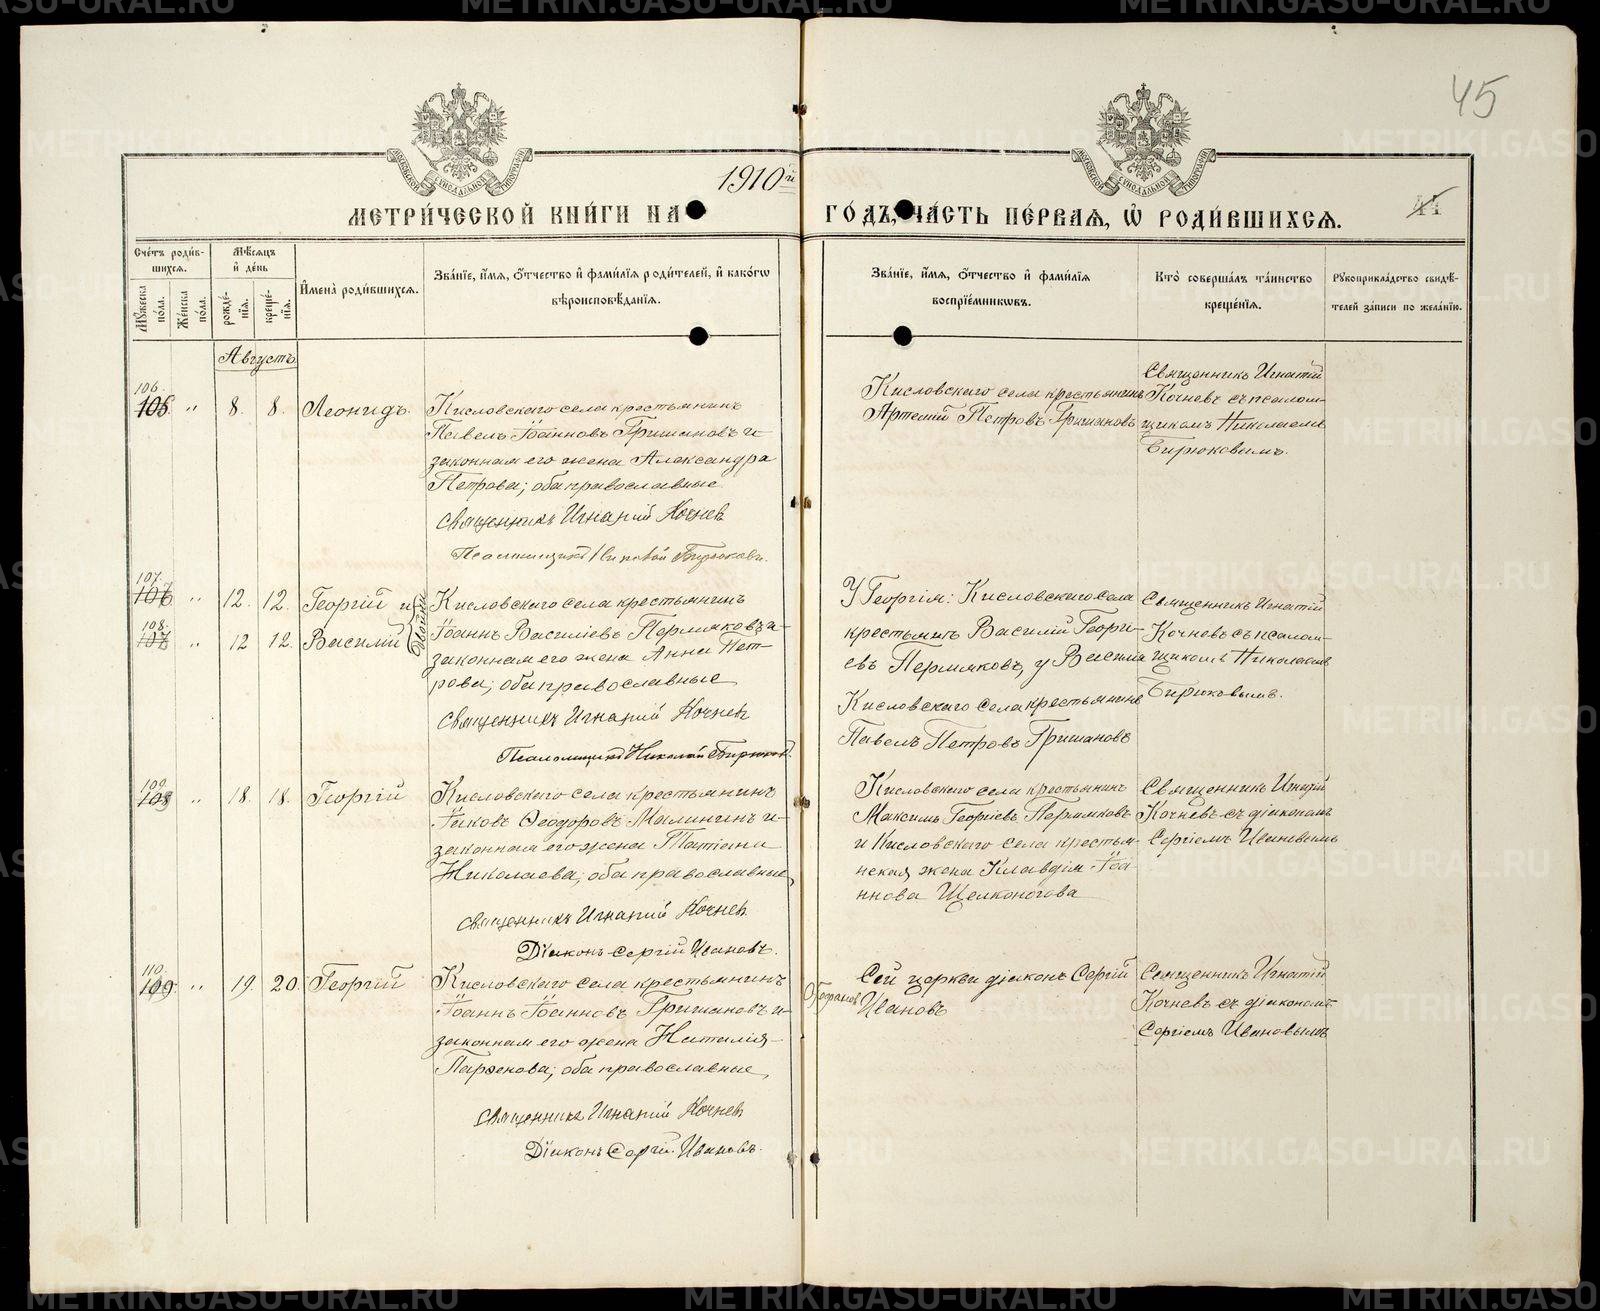 45
44
1910й
МЕТРИ́ЧЕСКОЙ КНИ́ГИ НА ГО́ДЪ, ЧА́СТЬ ПЕ́РВАЯ, Ѡ РОДИ́ВШИХСЯ.
Сче́тъ роди́в-
шихся.
Мѣ́сяцъ
и҆ де́нь
Му́жеска по́ла.
Же́нска по́ла.
рожде́-
нїя.
креще́-
нїя.
И҆мена̀ роди́вшихся.
Зва́нїе, и҆́мя, ѻ҆́тчество и҆ фами́лїя роди́телей, и҆ како́гѡ
вѣроисповѣ́данїя.
Зва́нїе, и҆́мя, ѻ҆́тчество и҆ фами́лїя
воспрїе́мникѡвъ.
Кто̀ соверша́лъ та́инство
креще́нїя.
Рꙋкоприкла́дство свидѣ́-
телей за́писи по жела́нїю.
Августъ
106.
105. " 8. 8. Леонидъ.
Кисловскаго села крестьянинъ
Павелъ Іоанновъ Гришановъ и
законная его жена Александра
Петрова; оба православные
Священникъ Игнатій Кочнев
Псаломщикъ Николай Бирюковъ.
Кисловскаго села крестьянинъ
Артемій Петровъ Гришановъ
Священникъ Игнатій
Кочневъ съ псалом-
щикомъ Николаемъ
Бирюковымъ.
107.
106 " 12. 12. Георгій и
108.
107 " 12 12. Василій
двойни
Кисловскаго села крестьянинъ
Іоаннъ Василіевъ Пермяковъ и
законная его жена Анна Пет-
рова; оба православные
Священникъ Игнатій Кочнев
Псаломщикъ Николай Бирюков.
У Георгія: Кисловскаго села
крестьянинъ Василій Георгі-
евъ Пермяковъ, у Василія
Кисловскаго села крестьянинъ
Павелъ Петровъ Гришановъ
Священникъ Игнатій
Кочневъ съ псалом-
щикомъ Николаемъ
Бирюковымъ.
109.
108 " 18. 18. Георгій
Кисловскаго села крестьянинъ
Іаковъ Ѳеодоровъ Малининъ и
законная его жена Татіана
Николаева; оба православные,
Священникъ Игнатій Кочнев
Діаконъ Сергій Ивановъ.
Кисловскаго села крестьянинъ
Максимъ Георгіевъ Пермяковъ
и Кисловскаго села крестьян-
ская жена Клавдія Іоан-
нова Щелконогова
Священникъ Игнатій
Кочневъ съ діакономъ
Сергіемъ Ивановымъ
110.
109. " 19. 20. Георгій
Кисловскаго села крестьянинъ
Іоаннъ Іоанновъ Гришановъ и
законная его жена Наталія
Парѳенова; оба православные,
Священникъ Игнатій Кочнев
Діаконъ Сергій Ивановъ.
Сей церкви діаконъ Сергій
Ивановъ
Священникъ Игнатій
Кочневъ съ діакономъ
Сергіемъ Ивановымъ
METRIKI.GASO-URAL.RU